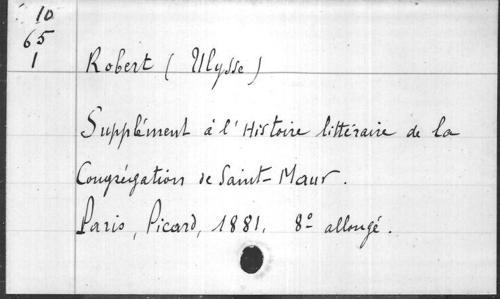 10
65
1
Robert (Ulysse)
Supplément à l'Histoire littéraire de la
Congrégation de Saint-Maur.
Paris, Picard, 1881, 8º allongé.